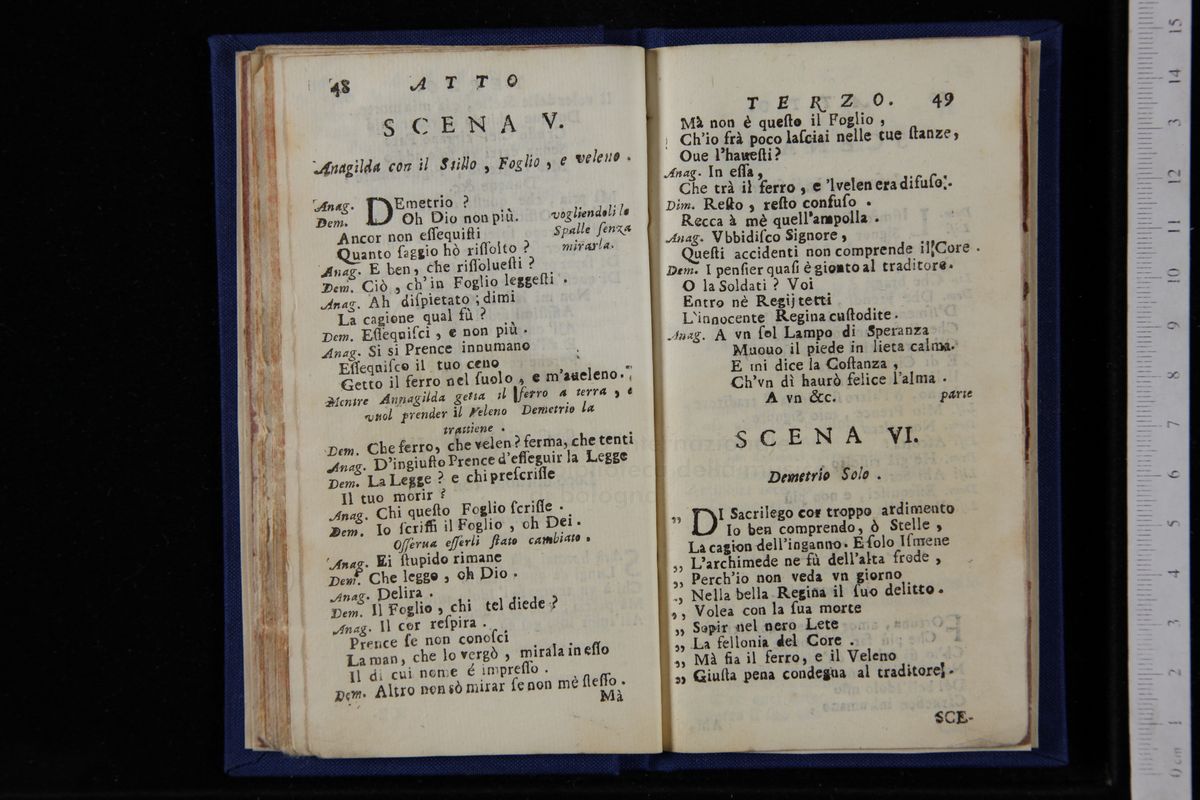 48 ATTO
SCENA V.
Anagilda con il Stillo, Foglio, e veleno.
Anag. DEmetrio?
Dem. Oh Dio non più. vogliendoli le
Ancor non eſſequiſti Spalle ſenza
Quanto ſaggio hò riſſolto? mirarla.
Anag. E ben, che riſſolueſti?
Dem. Ciò, ch'in Foglio leggeſti.
Anag. Ah diſpietato; dimi
La cagione qual fù?
Dem. Eſſequiſci, e non più.
Anag. Si si Prence innumano
Eſſequiſco il tuo ceno
Getto il ferro nel ſuolo, e m'aueleno.
Mentre Annagilda getta il ferro a terra, e
vuol prender il Veleno Demetrio la
trattiene.
Dem. Che ferro, che velen? ferma, che tenti
Anag. D'ingiuſto Prence d'eſſeguir la Legge
Dem. La Legge? e chi preſcriſſe
Il tuo morir?
Anag. Chi queſto Foglio ſcriſſe.
Dem. Io ſcriſſi il Foglio, oh Dei.
Oſſerua eſſerli ſtato cambiato.
Anag. Ei ſtupido rimane
Dem. Che leggo, oh Dio.
Anag. Delira.
Dem. Il Foglio, chi tel diede?
Anag. Il cor reſpira.
Prence ſe non conoſci
La man, che lo vergò, mirala in eſſo
Il di cui nome é impreſſo.
Dem. Altro non sò mirar ſe non mè ſteſſo.
Mà
TERZO. 49
Mà non è queſto il Foglio,
Ch'io frà poco laſciai nelle tue ſtanze,
Oue l'haueſti?
Anag. In eſſa,
Che trà il ferro, e 'l velen era difuſo.
Dim. Reſto, reſto confuſo.
Recca à mè quell'ampolla.
Anag. Vbbidiſco Signore,
Queſti accidenti non comprende il Core.
Dem. I penſier quaſi è gionto al traditore.
O la Soldati? Voi
Entro nè Regij tetti
L'innocente Regina cuſtodite.
Anag. A vn ſol Lampo di Speranza
Muouo il piede in lieta calma.
E mi dice la Coſtanza,
Ch'vn dì haurò felice l'alma.
A vn &c. parte
SCENA VI.
Demetrio Solo.
„ DI Sacrilego cor troppo ardimento
Io ben comprendo, ò Stelle,
La cagion dell'inganno. E ſolo Iſmene
„ L'archimede ne fù dell'alta frode,
„ Perch'io non veda vn giorno
„ Nella bella Regina il ſuo delitto.
„ Volea con la ſua morte
„ Sopir nel nero Lete
„ La fellonia del Core.
„ Mà ſia il ferro, e il Veleno
„ Giuſta pena condegna al traditore.
SCE-